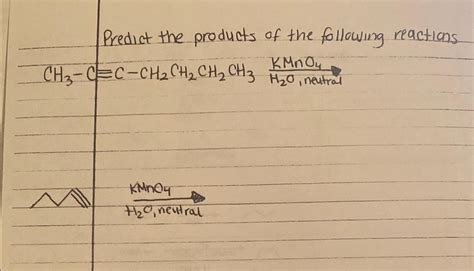 Predict the products of the following reactions
CH3-C≡C-CH2CH2CH2CH3 KMnO4
H2O, neutral
KMnO4
H2O, neutral